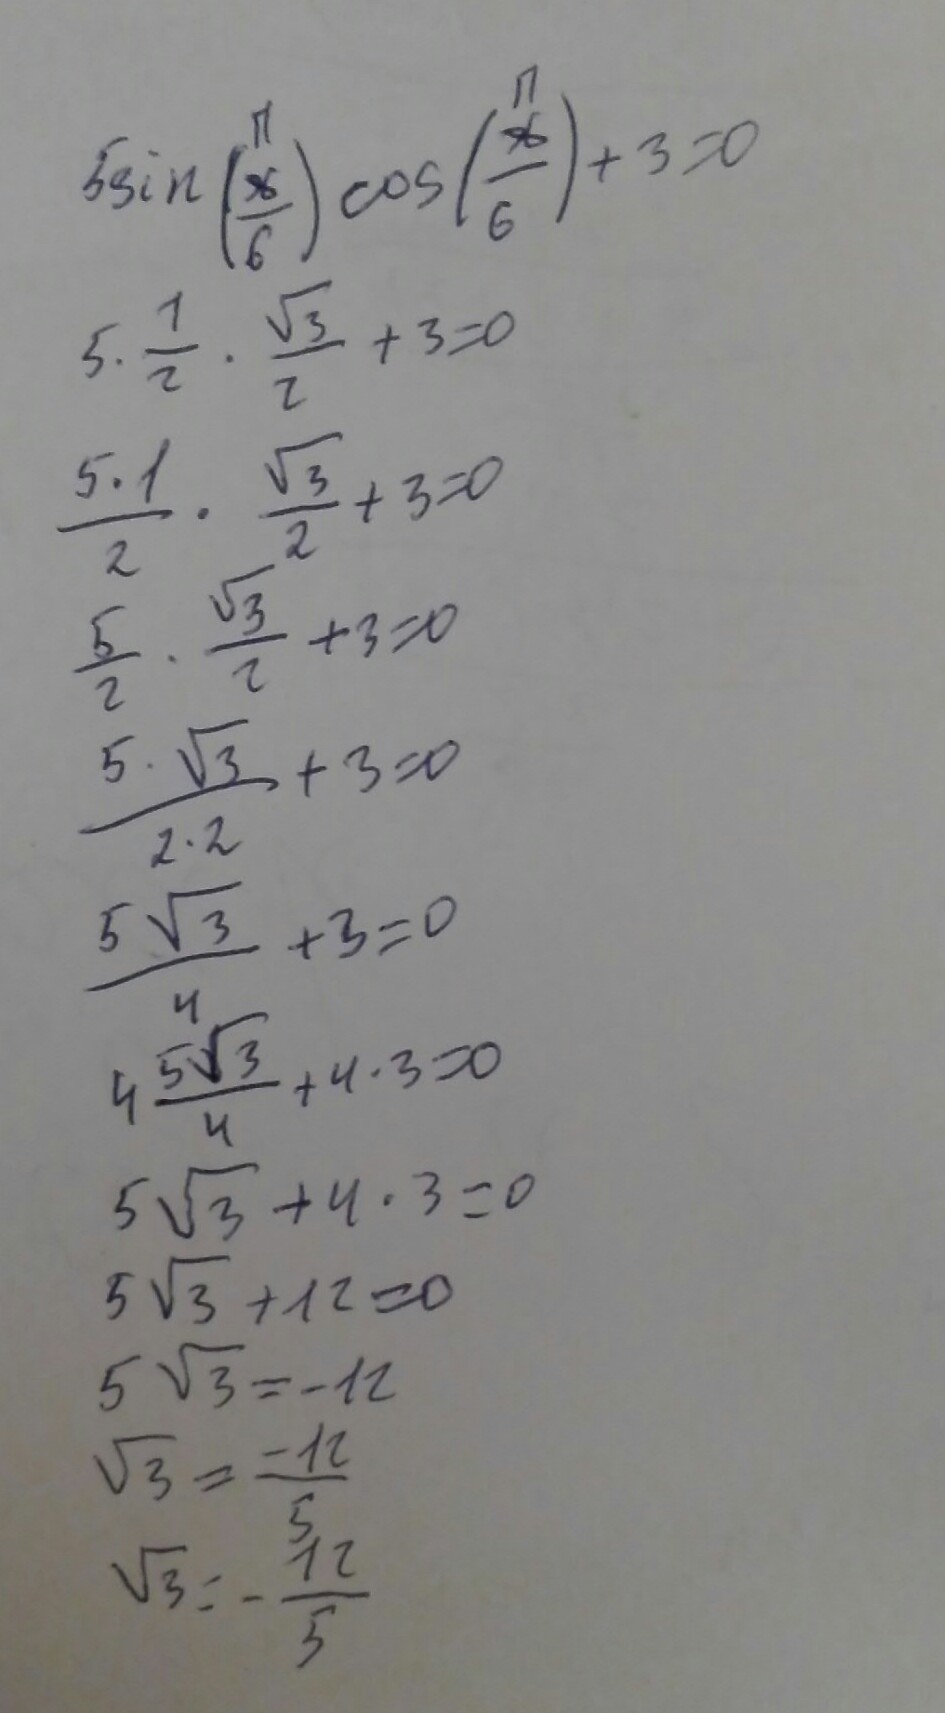 5sin(π/6) cos(π/6) + 3 = 0
5 · 1/2 · √3/2 + 3 = 0
5·1/2 · √3/2 + 3 = 0
5/2 · √3/2 + 3 = 0
5·√3/2·2 + 3 = 0
5√3/4 + 3 = 0
4 5√3/4 + 4·3 = 0
5√3 + 4·3 = 0
5√3 + 12 = 0
5√3 = -12
√3 = -12/5
√3 = -12/5